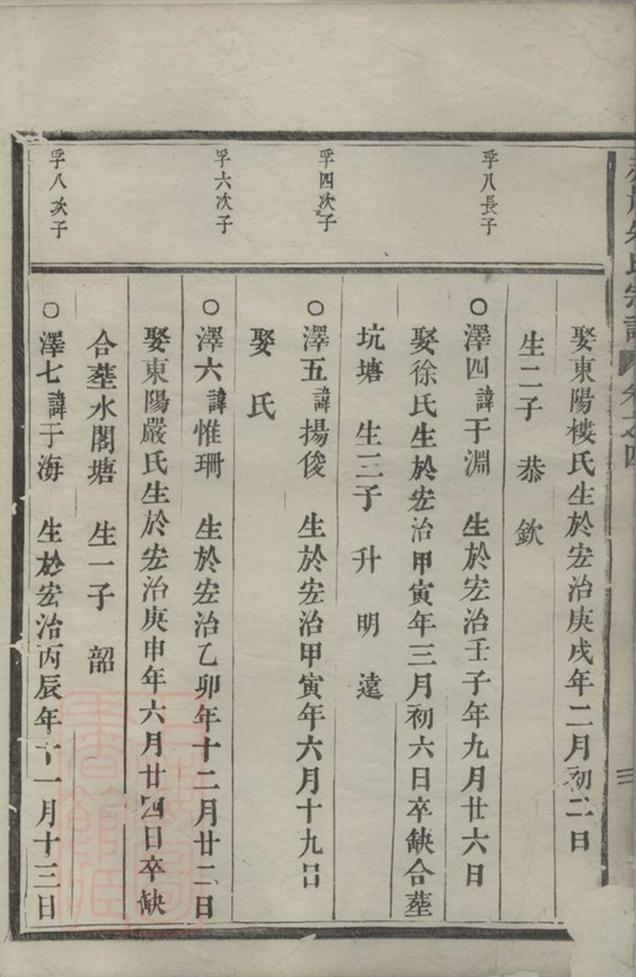 朱氏宗譜 卷之四
三
娶東陽樓氏生於宏治庚戌年二月初二日
生二子 恭 欽
孚八長子
○澤四諱于淵 生於宏治壬子年九月廿六日
娶徐氏生於宏治甲寅年三月初六日卒缺合塟
坑塘 生三子 升 明 遠
孚四次子
○澤五諱揚俊 生於宏治甲寅年六月十九日
娶 氏
孚六次子
○澤六諱惟珊 生於宏治乙卯年十二月廿二日
娶東陽嚴氏生於宏治庚申年六月廿四日卒缺
合塟水閣塘 生一子 韶
孚八次子
○澤七諱于海 生於宏治丙辰年十一月十三日